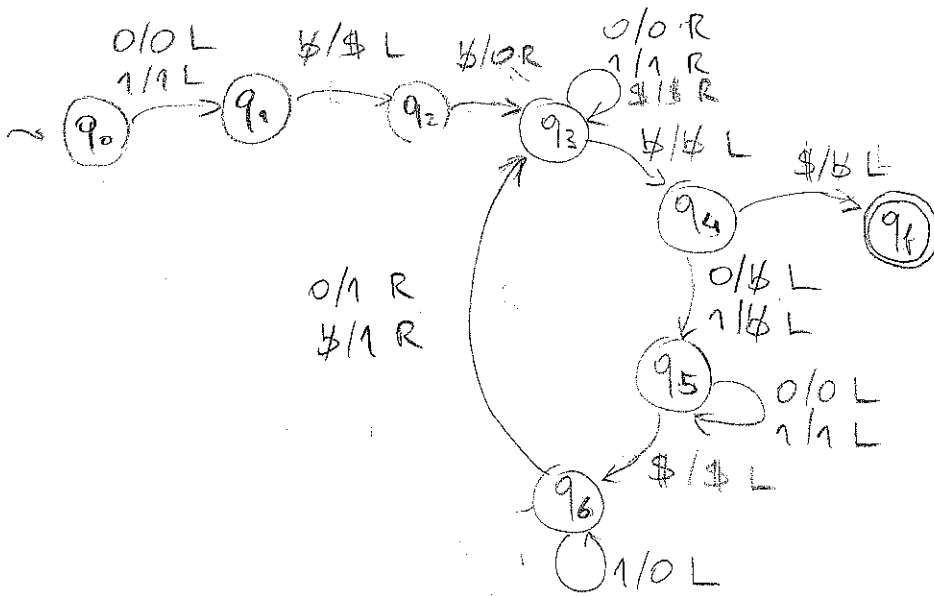 0/0 L
1/1 L
ƀ/$ L
ƀ/0 R
0/0 R
1/1 R
$/$ R
q0
q1
q2
q3
ƀ/ƀ L
$/ƀ L
q4
qf
0/1 R
ƀ/1 R
0/ƀ L
1/ƀ L
q5
0/0 L
1/1 L
$/$ L
q6
1/0 L